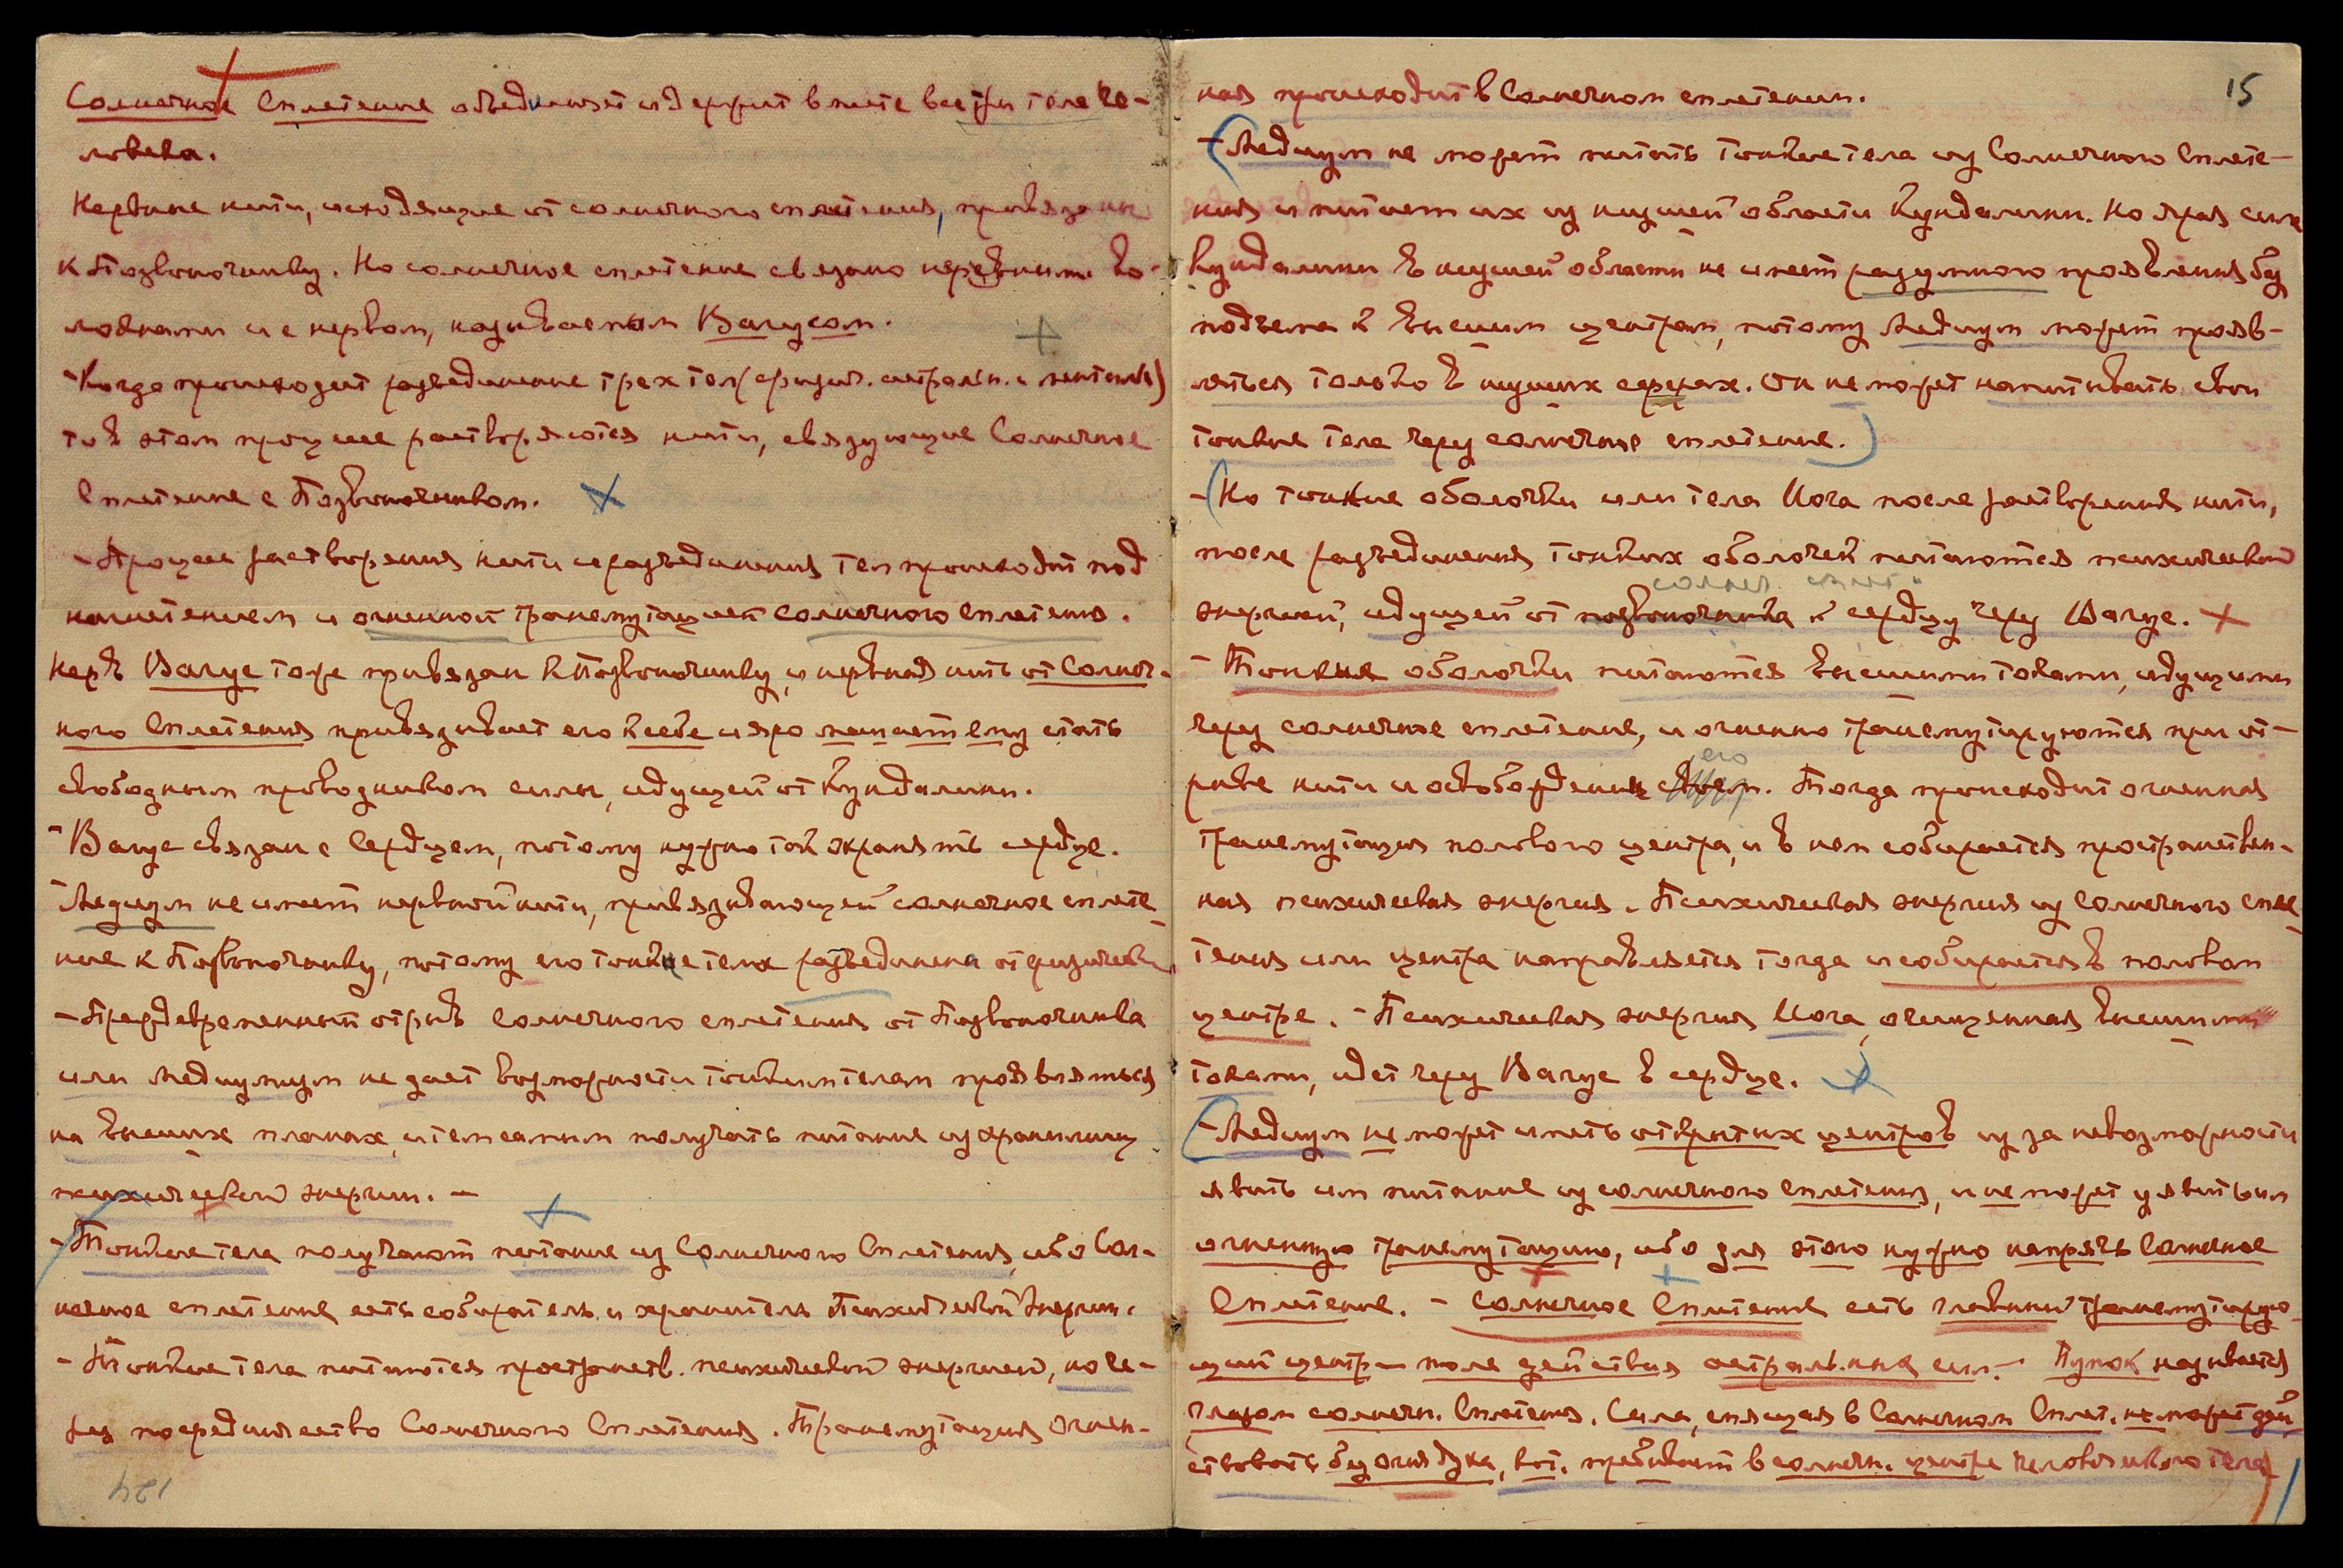 Солнечное Сплетение объединяет и держит вместе все три тела че-
ловека.
Нервные нити, исходящие от солнечного сплетения, привязаны
к Позвоночнику. Но солнечное сплетение связано нервными во-
локнами и с нервом, называемым Вагусом.
- Когда происходит разъединение трех тел (физич. астральн. и ментальн)
то в этом процессе растворяются нити, связующие Солнечное
Сплетение с Позвоночником.
- Процесс растворения нити и разъединения тел происходит под
нагнетением и огненной трансмутацией солнечного сплетения.
Нерв Вагус тоже привязан к Позвоночнику, и нервная нить от Солнеч-
ного Сплетения привязывает его к себе и яро мешает ему стать
свободным проводником силы, идущей от Кундалини.
- Вагус связан с Сердцем, потому нужно так охранять сердце.
- Медиум не имеет нервной нити, привязывающей солнечное сплете-
ние к Позвоночнику, потому его тонкие тела разъединены от физическ.
- Преждевременный отрыв солнечного сплетения от Позвоночника
или медиумизм не дает возможности тонким телам проявляться
на высших планах, и тем самым получать питание из хранилищ
психической энергии. -
- Тонкие тела получают питание из Солнечного Сплетения, ибо Сол-
нечное сплетение есть собиратель и хранитель Психической Энергии.
- Тонкие тела питаются пространств. психической энергией, но че-
рез посредничество Солнечного Сплетения. Трансмутация огнен-
124
15
ная происходит в Солнечном сплетении.
- Медиум не может питать тонкие тела из Солнечного Сплете-
ния и питает их из низшей области Кундалини. Но ярая сила
Кундалини в низшей области не имеет разумного проявления без
подъема к высшим центрам, потому Медиум может прояв-
ляться только в низших сферах. Он не может напитывать свои
тонкие тела через солнечное сплетение.)
- (Но тонкие оболочки или тела Йога после растворения нити,
после разъединения тонких оболочек питаются психической
солнеч. сплет.
энергией, идущей от позвоночника к сердцу через Вагус.
- Тонкие оболочки питаются высшими токами, идущими
через солнечное сплетение, и огненно трансмутируются при от-
его
рыве нити и освобождении своем. Тогда происходит огненная
трансмутация полового центра, и в нем собирается пространствен-
ная психическая энергия. Психическая энергия из Солнечного спле-
тения или центра направляется тогда и собирается в половом
центре. - Психическая энергия Йога, очищенная высшими
токами, идет через Вагус в сердце.
- Медиум не может иметь открытых центров из за невозможности
явить им питание из солнечного сплетения, и не может уявить им
огненную трансмутацию, ибо для этого нужно напрячь Солнечное
Сплетение. - Солнечное Сплетение есть главный трансмутирую-
щий центр - поле действия астральных сил. - Пупок называется
глазом солнечн. Сплетения. Сила, спящая в Солнечном Сплет. не может дей-
ствовать без огня духа, кот. пребывает в солнечн. центре человеческого тела)